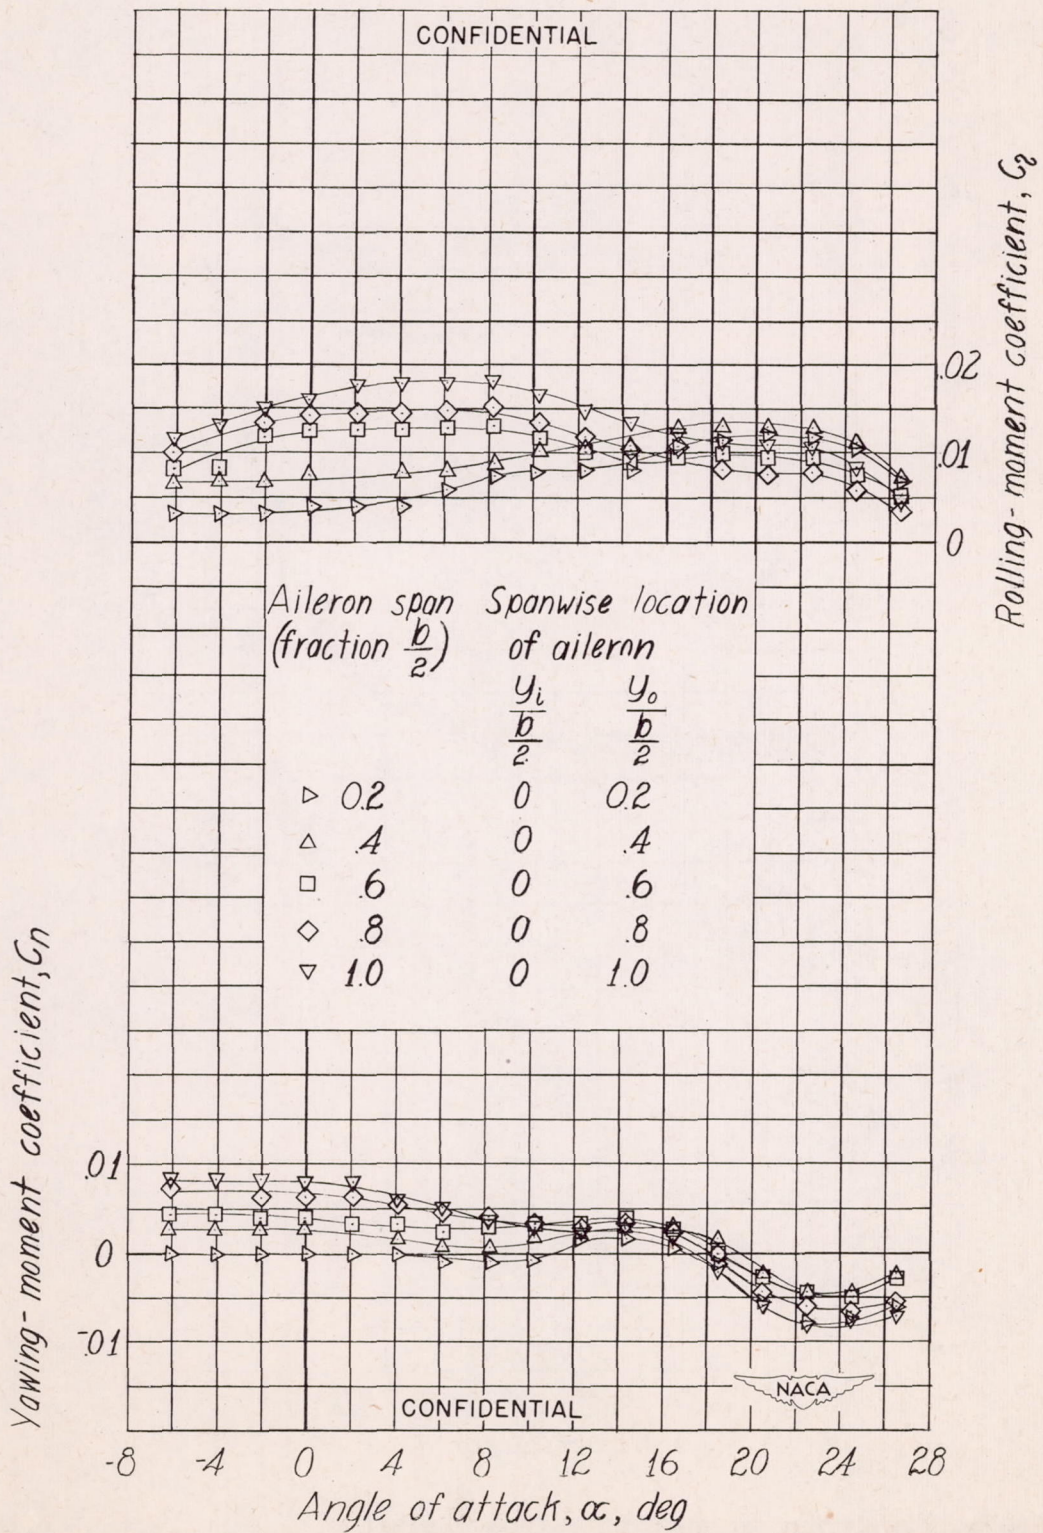 CONFIDENTIAL
.02
.01
0
Rolling-moment coefficient, Cl
Aileron span Spanwise location
(fraction b/2) of aileron
yi/b/2 yo/b/2
▷ 0.2 0 0.2
△ .4 0 .4
□ .6 0 .6
◇ .8 0 .8
▽ 1.0 0 1.0
Yawing-moment coefficient, Cn
.01
0
-.01
NACA
CONFIDENTIAL
-8 -4 0 4 8 12 16 20 24 28
Angle of attack, α, deg